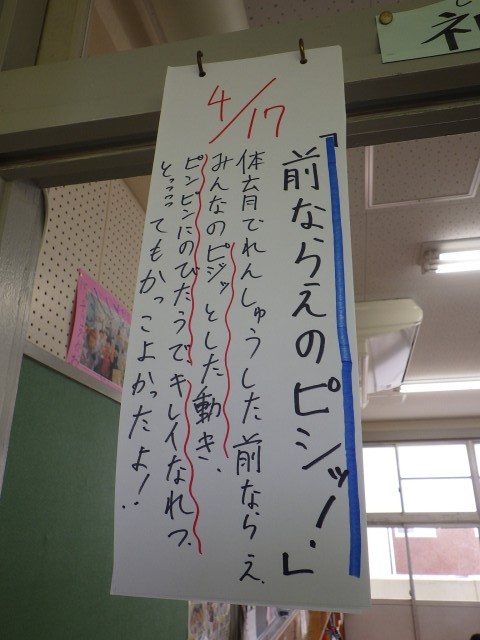 4/17
『前ならえのピシッ!』
体育でれんしゅうした前ならえ.
みんなのピシッとした動き、
ピンピンにのびたうで、キレイなれつ、
とっっってもかっこよかったよ!
ネ